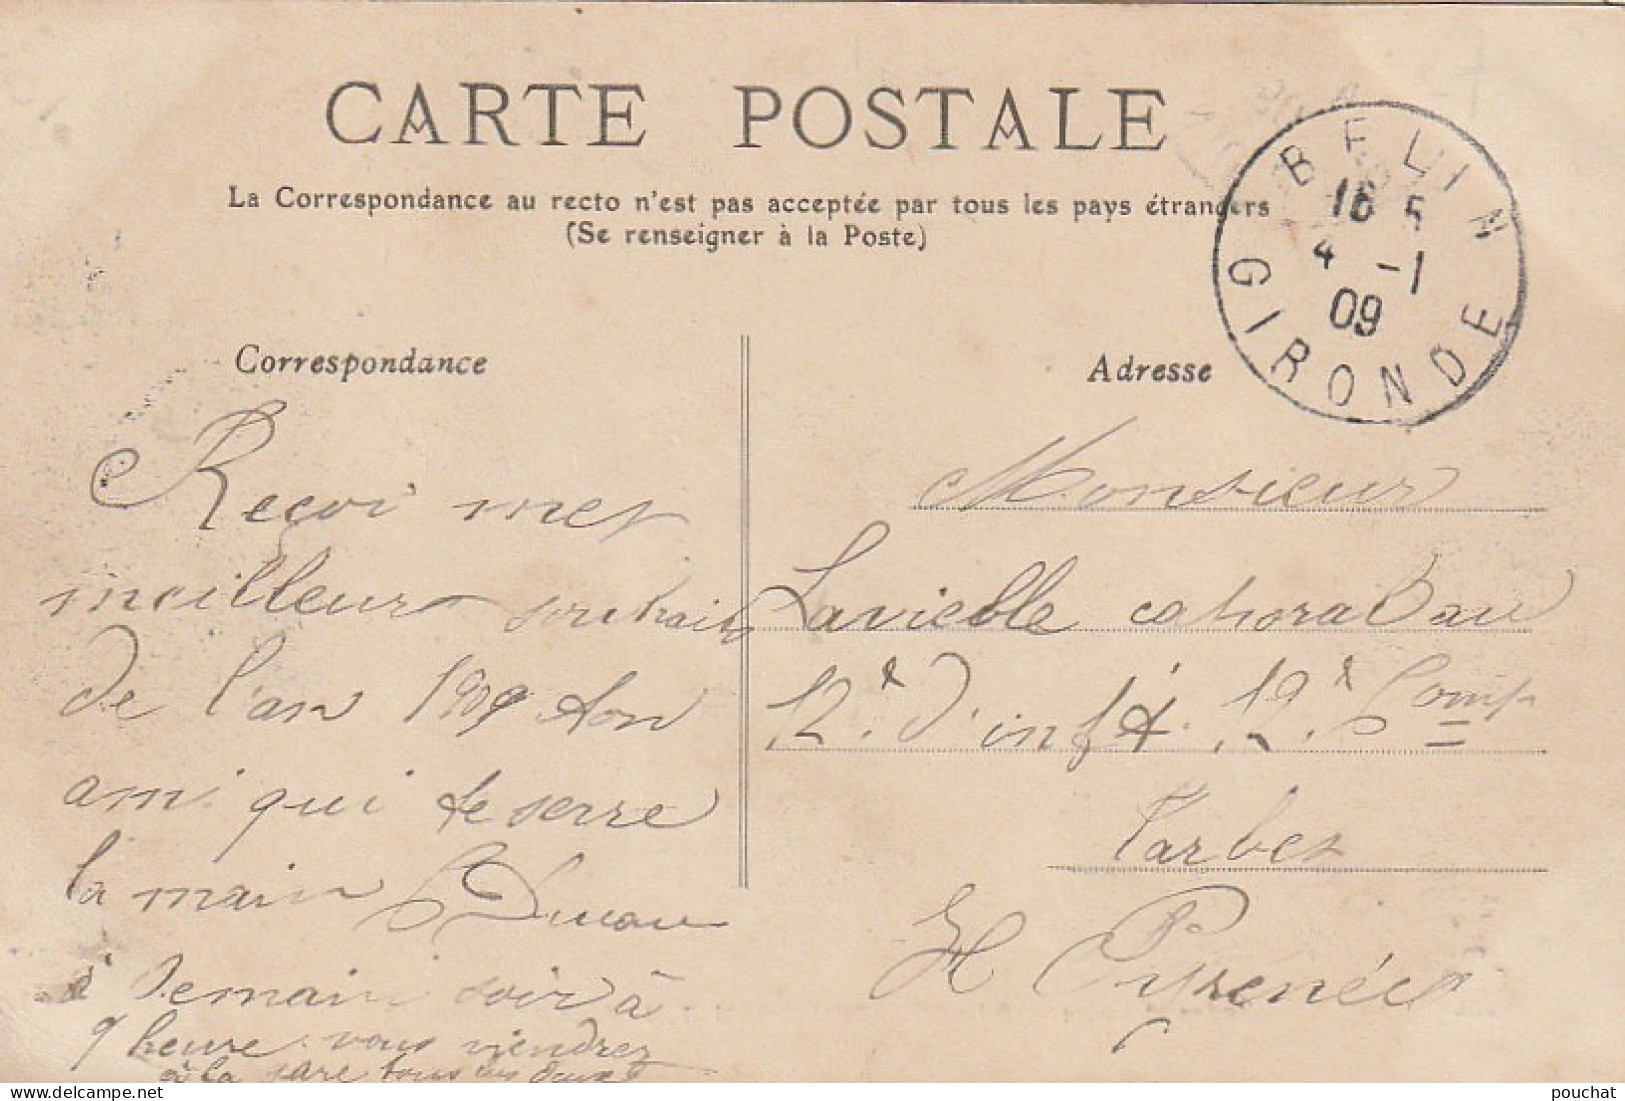 CARTE POSTALE
La Correspondance au recto n'est pas acceptée par tous les pays étrangers
(Se renseigner à la Poste)
BELIN
16 5
4 -1
09
GIRONDE
Correspondance
Reçoi mes
meilleur souhaits
de l'an 1909 ton
ami qui te serre
la main
à Demain soir à
9 heure vous viendrez
à la gare tous les deux
Adresse
Monsieur
Lavielle au
12e d'inft. 12e Comp
Tarbes
H Pyrenées
pouchat